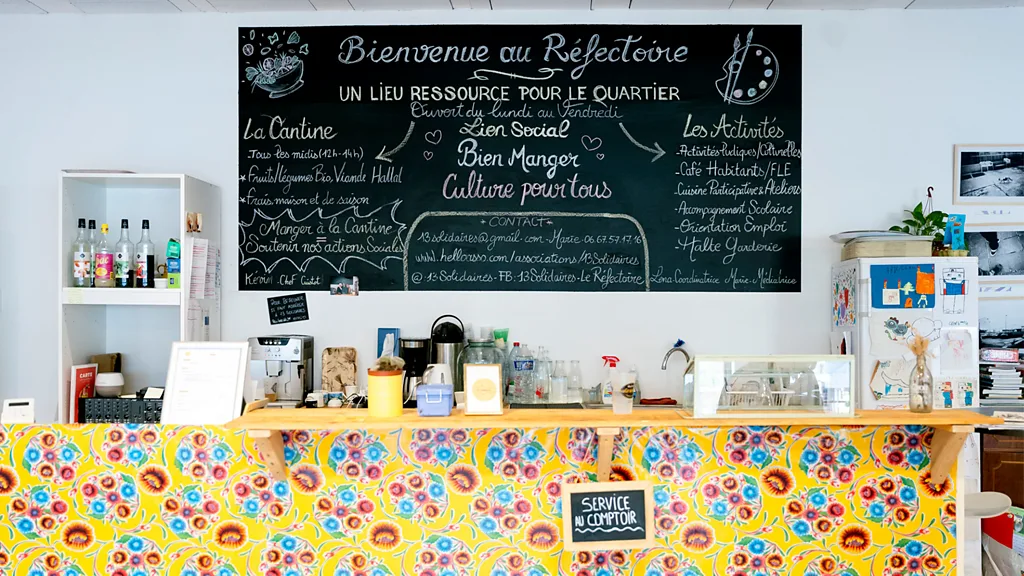 Bienvenue au Réfectoire
UN LIEU RESSOURCE POUR LE QUARTIER
Ouvert du lundi au Vendredi
Lien Social
Bien Manger
Culture pour tous
La Cantine
Tous les midis (12h-14h)
* Fruits/légumes Bio, Viande Hallal
* Frais, maison et de saison
Manger à la Cantine
Soutenir nos actions Sociales
Kévin - Chef Cuistot
Les Activités
- Activités Ludiques/Culturelles
- Café Habitants/FLE
- Cuisine Participative & Ateliers
- Accompagnement Scolaire
- Orientation Emploi
- Halte Garderie
* CONTACT *
13solidaires@gmail.com - Marie - 06.67.57.17.16
www.helloasso.com/associations/13Solidaires
@ 13Solidaires - FB: 13Solidaires - Le Réfectoire
Léna - Coordinatrice Marie - Médiatrice
SERVICE
AU COMPTOIR